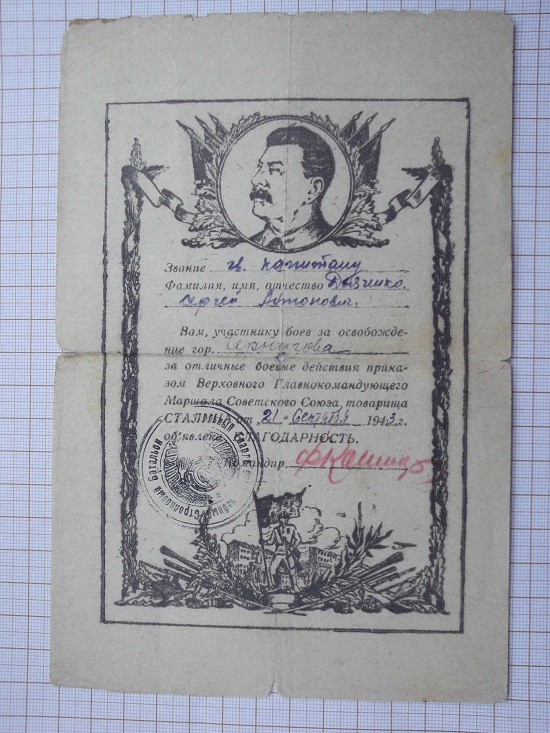 Звание гв. капитану
Фамилия, имя, отчество
Сергей Антонович.
Вам, участнику боев за освобожде-
ние гор. Чернигова
за отличные боевые действия прика-
зом Верховного Главнокомандующего
Маршала Советского Союза, товарища
СТАЛИНА от 21 Сентября 1943 г.
об'явлена БЛАГОДАРНОСТЬ.
Командир
Стрелковый Батальон